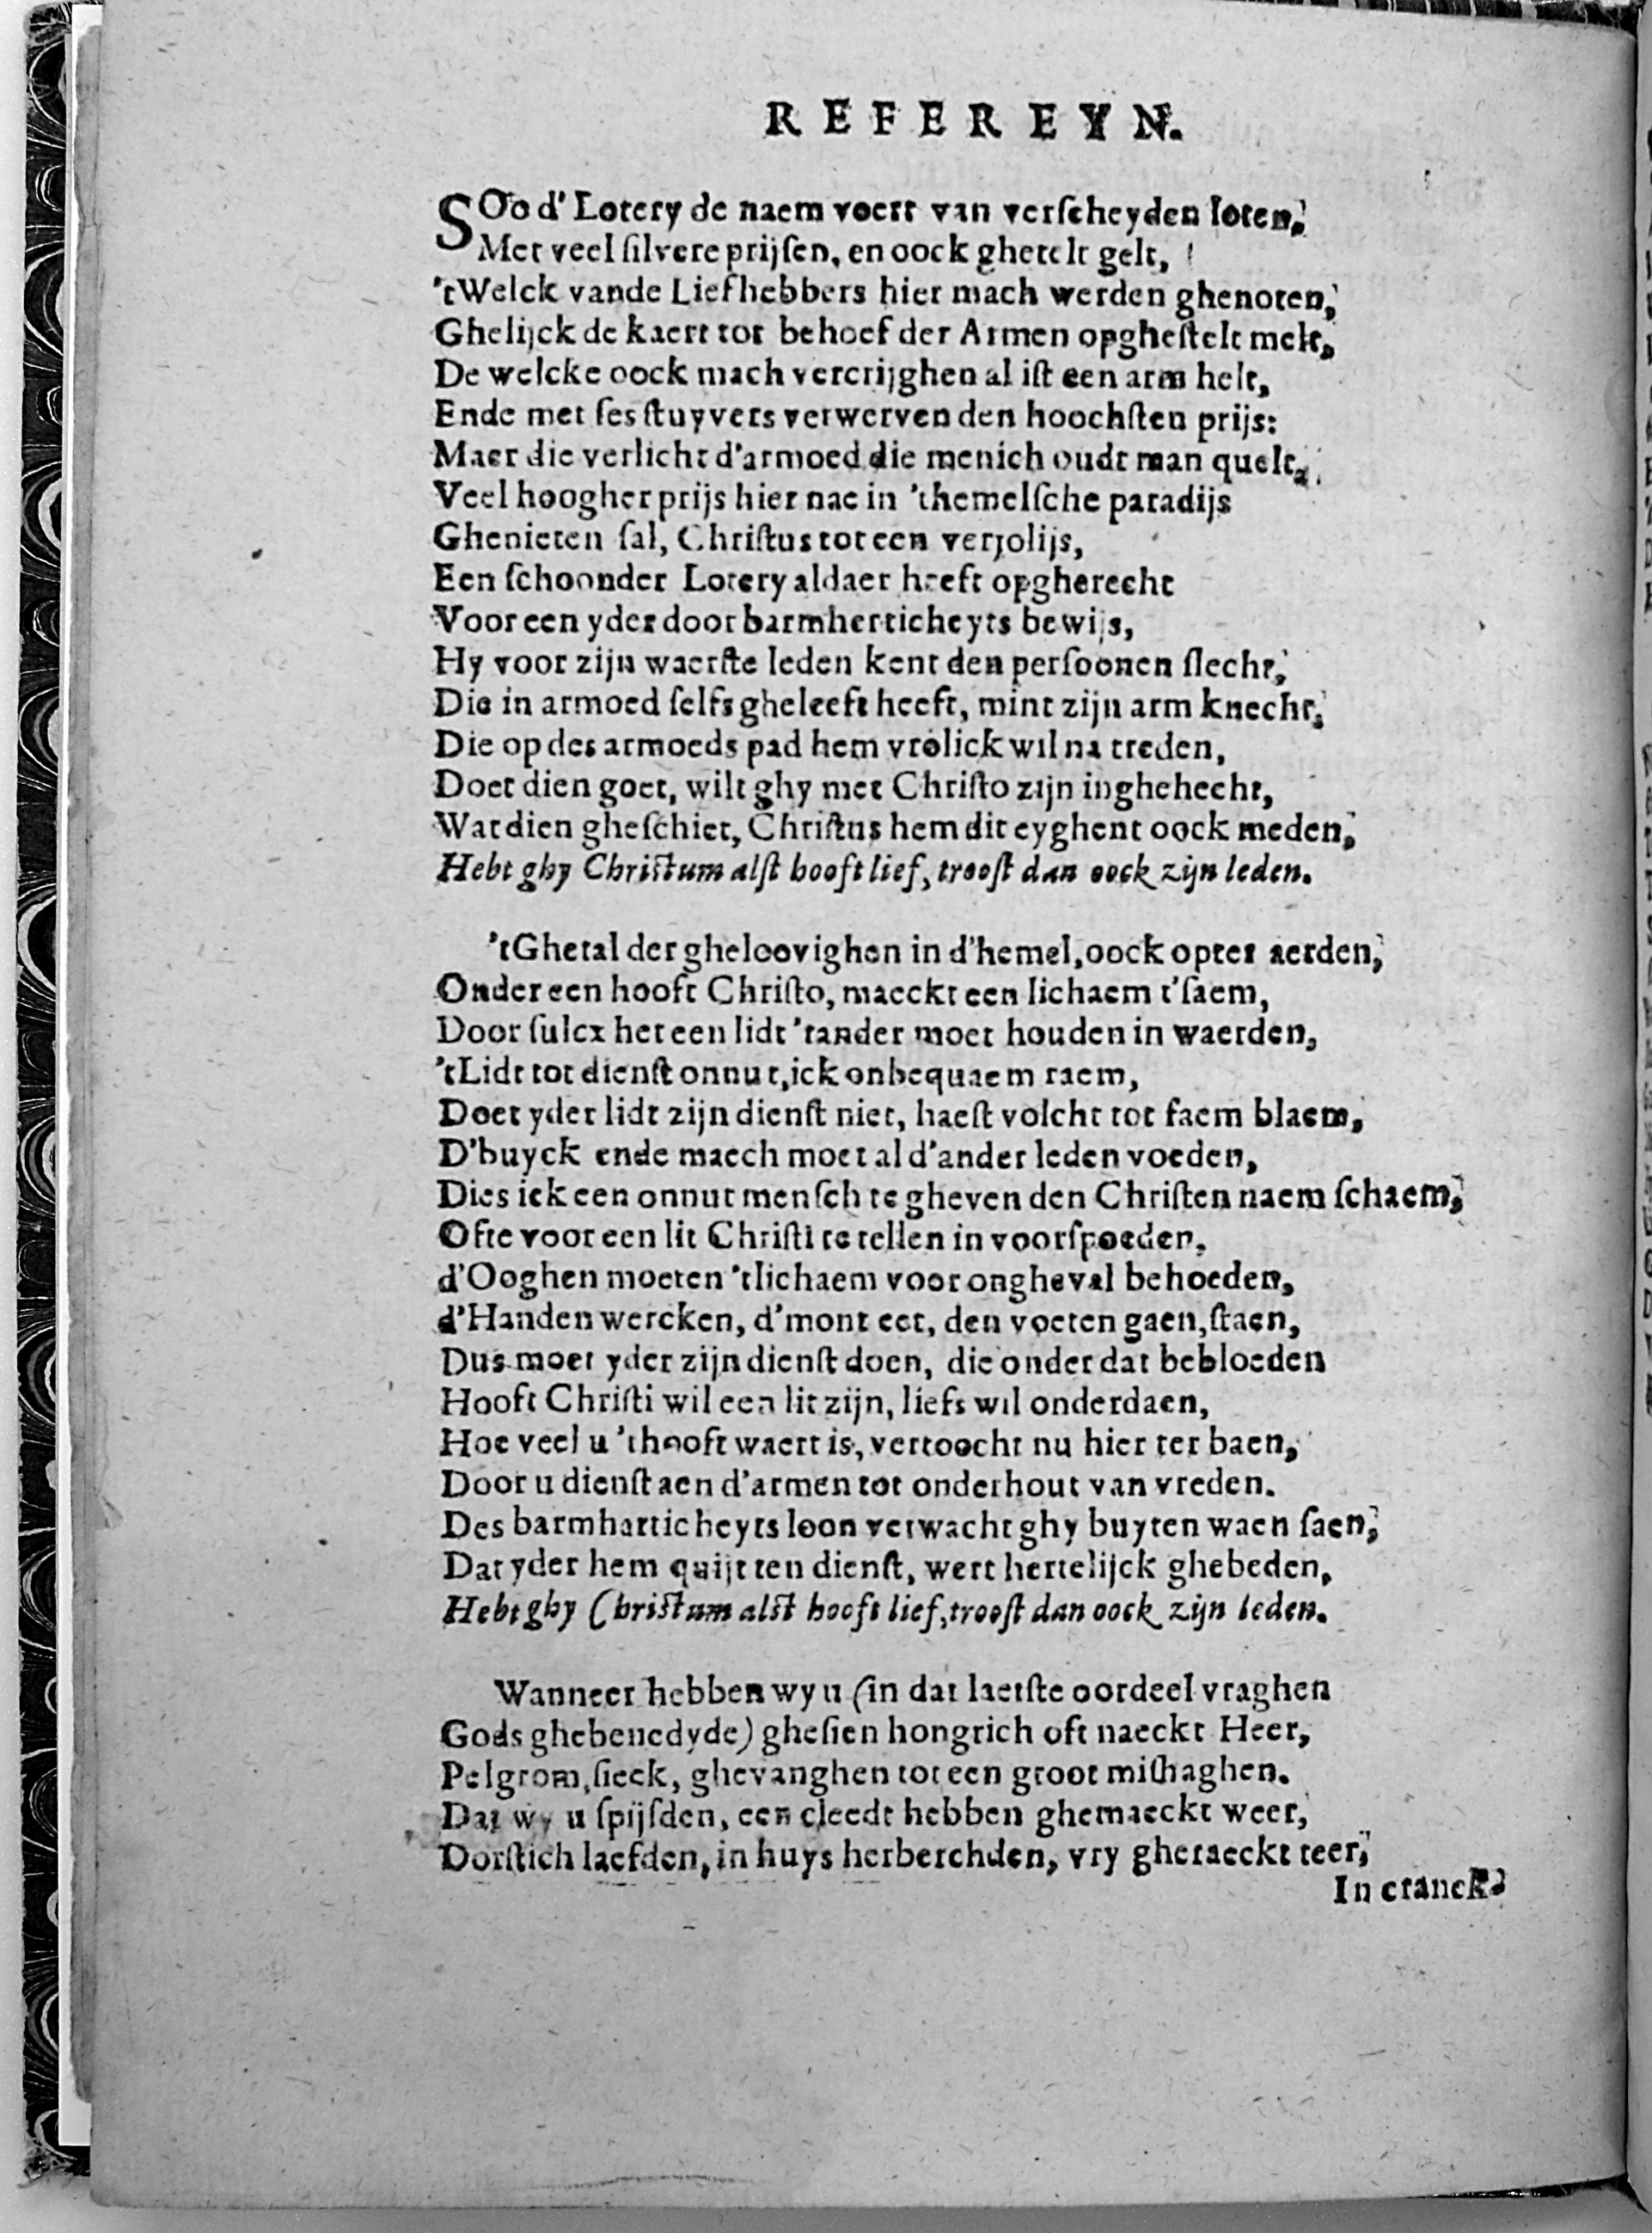 REFEREYN.
SOo d' Lotery de naem voert van verscheyden loten,
Met veel silvere prijsen, en oock ghetelt gelt,
'tWelck vande Liefhebbers hier mach werden ghenoten,
Ghelijck de kaert tot behoef der Armen opghestelt melt,
De welcke oock mach vercrijghen al ist een arm helt,
Ende met ses stuyvers verwerven den hoochsten prijs:
Maer die verlicht d'armoed die menich oudt man quelt,
Veel hoogher prijs hier nae in 'themelsche paradijs
Ghenieten sal, Christus tot een verjolijs,
Een schoonder Lotery aldaer heeft opgherecht
Voor een yder door barmherticheyts bewijs,
Hy voor zijn waerste leden kent den persoonen slecht,
Die in armoed selfs gheleeft heeft, mint zijn arm knecht,
Die op des armoeds pad hem vrólick wil na treden,
Doet dien goet, wilt ghy met Christo zijn inghehecht,
Wat dien gheschiet, Christus hem dit eyghent oock meden,
Hebt ghy Christum alst hooft lief, troost dan oock zijn leden.
'tGhetal der gheloovighen in d'hemel, oock opter aerden,
Onder een hooft Christo, maeckt een lichaem t'saem,
Door sulcx het een lidt 'tander moet houden in waerden,
'tLidt tot dienst onnut, ick onbequaem raem,
Doet yder lidt zijn dienst niet, haest volcht tot faem blaem,
D'buyck ende maech moet al d'ander leden voeden,
Dies ick een onnut mensch te gheven den Christen naem schaem,
Ofte voor een lit Christi te tellen in voorspoeden,
d'Ooghen moeten 'tlichaem voor ongheval behoeden,
d'Handen wercken, d'mont eet, den voeten gaen, staen,
Dus moet yder zijn dienst doen, die onder dat bebloeden
Hooft Christi wil een lit zijn, liefs wil onderdaen,
Hoe veel u 'thooft waert is, vertoocht nu hier ter baen,
Door u dienst aen d'armen tot onderhout van vreden.
Des barmharticheyts loon verwacht ghy buyten waen saen,
Dat yder hem quijt ten dienst, wert hertelijck ghebeden,
Hebt ghy Christum alst hooft lief, troost dan oock zijn leden.
Wanneer hebben wy u (in dat laetste oordeel vraghen
Gods ghebenedyde) ghesien hongrich oft naeckt Heer,
Pelgrom, sieck, ghevanghen tot een groot mishaghen.
Dat wy u spijsden, een cleedt hebben ghemaeckt weer,
Dorstich laefden, in huys herberchden, vry gheraeckt teer,
In cranck-